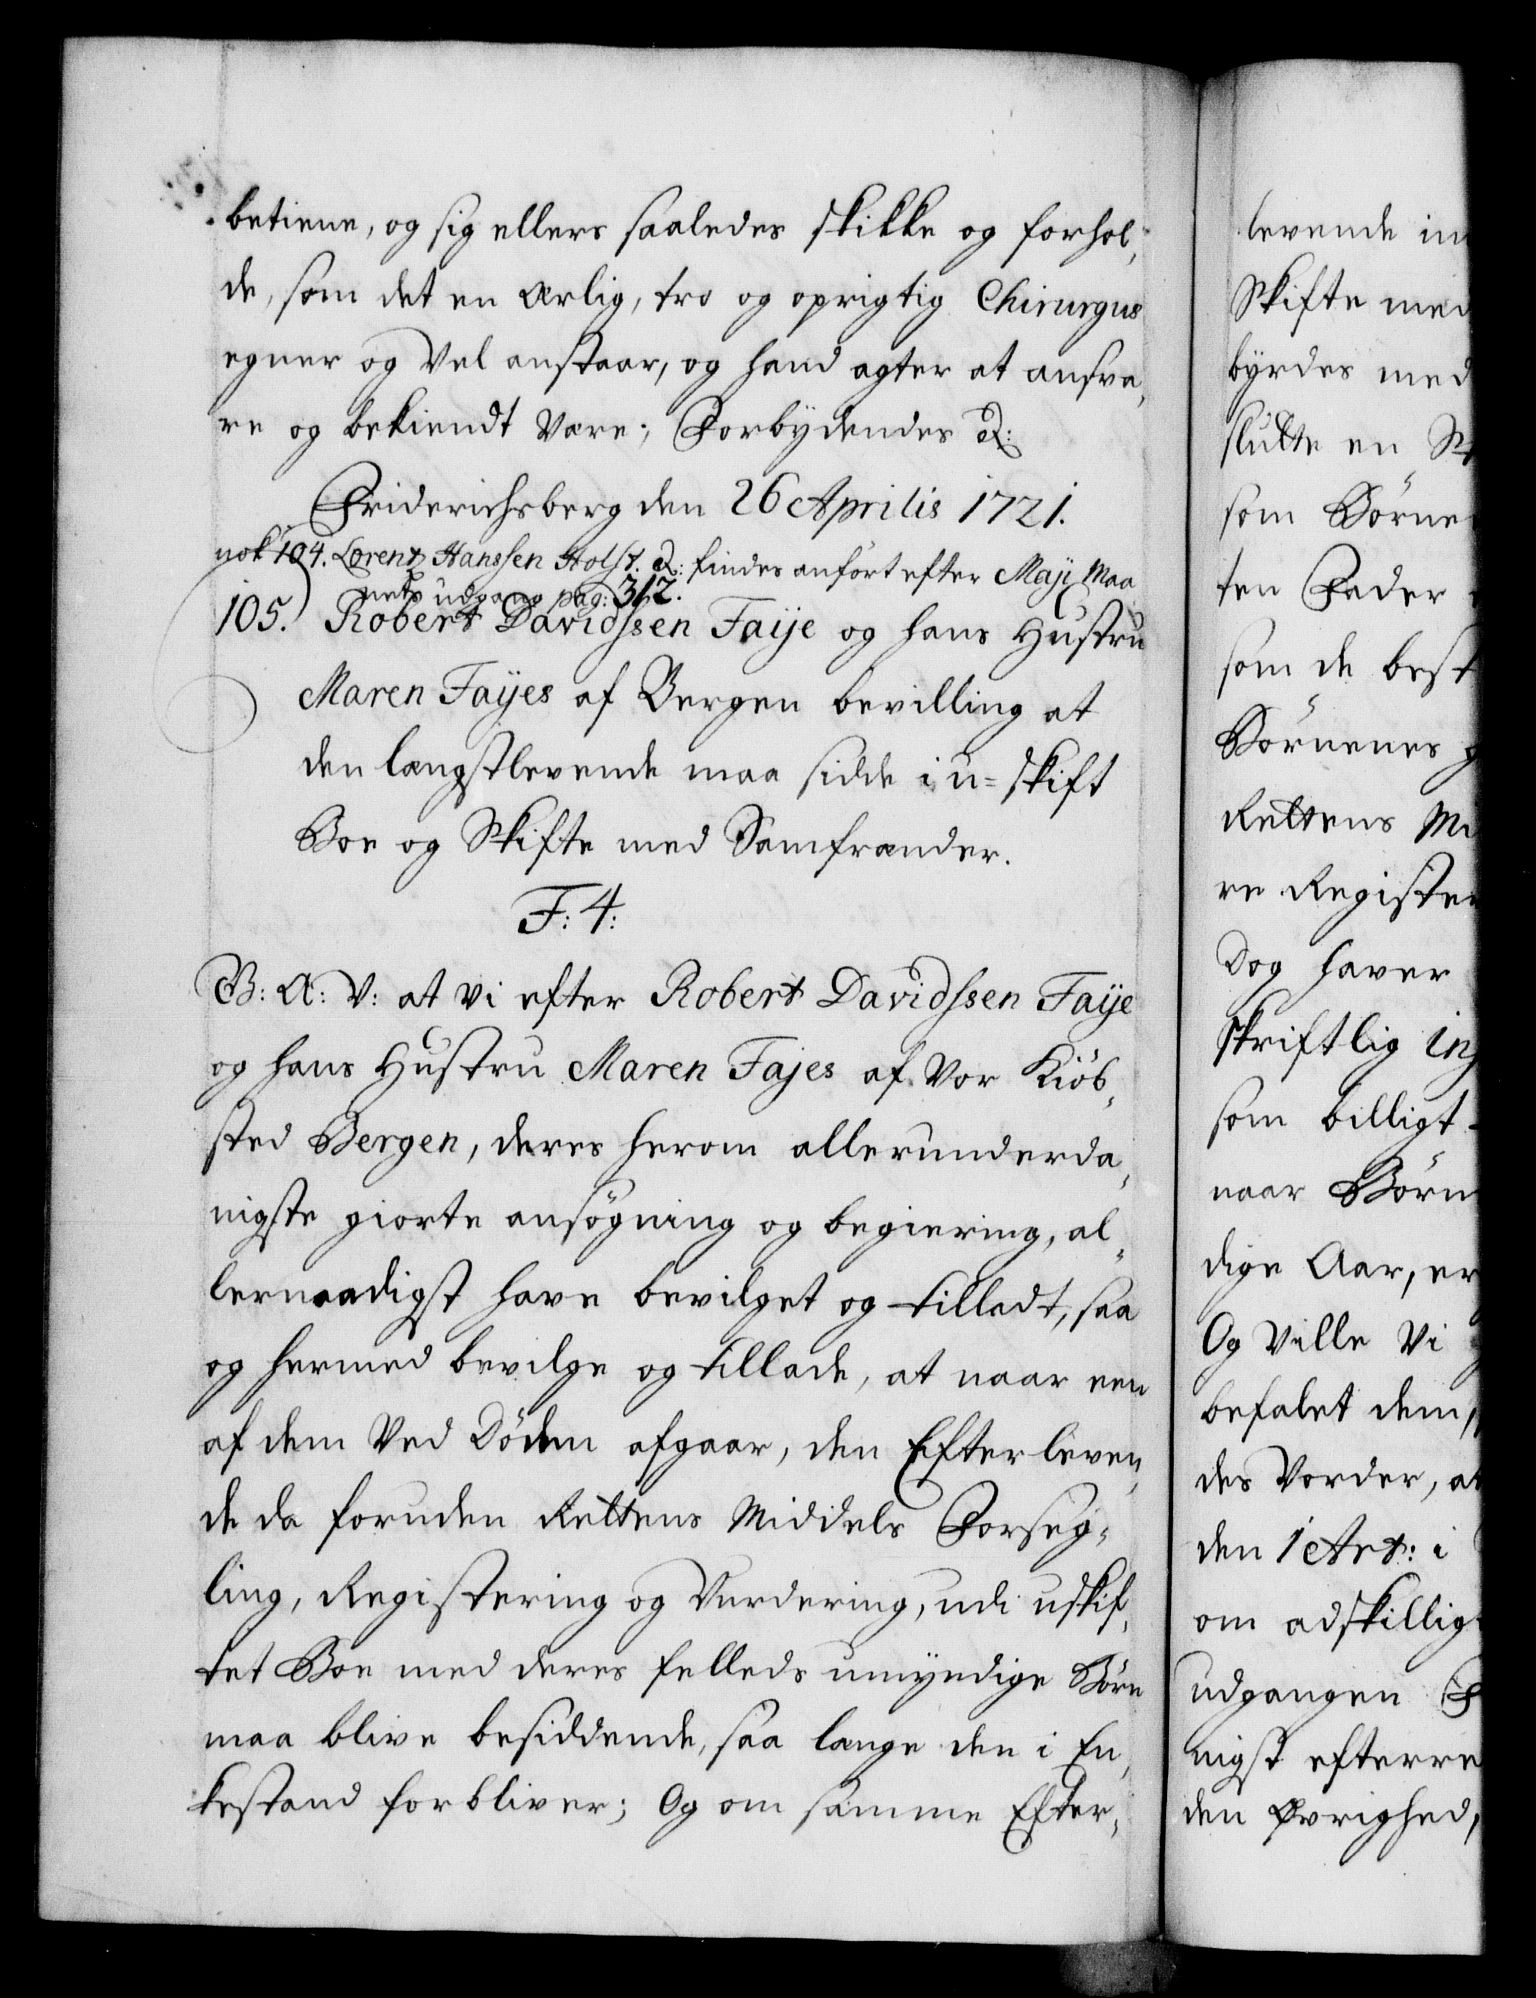 betiene, og sig ellers saaledes skikke og forhol,
de, som det en ærlig, tro og oprigtig Chirurgus
egner og vel anstaar, og hand agter at ansva,
re og bekiendt være; Forbydendes &:
Friderichsberg den 26 Aprilis 1721.
nok 104. Lorentz Hanssen Holst. &: findes anført efter Maji Maa
nets udgang pag: 312.
105. Robert Davidssen Faije og hans Hustru
Maren Faijes af Bergen bevilling at
den længstlevende maa sidde i u=skift
Boe og Skifte med Samfrænder.
F: 4:
G: A: V: at vi efter Robert Davidssen Faije
og hans Hustru Maren Fajes af Vor Kiöb,
sted Bergen, deres herom allerunderda,
nigste giorte ansögning og begiering, al,
lernaadigst have bevilget og tilladt, saa
og hermed bevilge og tillade, at naar een
af dem ved Döden afgaar, den Efterleven,
de da foruden Rettens Middels Forseg,
ling, Registering og Vurdering, udi uskif,
tet Boe med deres felleds umyndige Börn
maa blive besiddende, saa længe den i En,
kestand forbliver; Og om samme Efter,
levende in
Skifte med
byrdes med
slutte en
som Börne
ten Fader
som de best
Börnenes
Rettens Mi
re Register
Dog haver
skriftlig
som billigt
naar Börn
dige Aar, er
Og ville Vi
befalet dem,
des Vorder, at
den 1 Art: i
om adskillig
udgangen
nigst efterre
den Øvrighed,